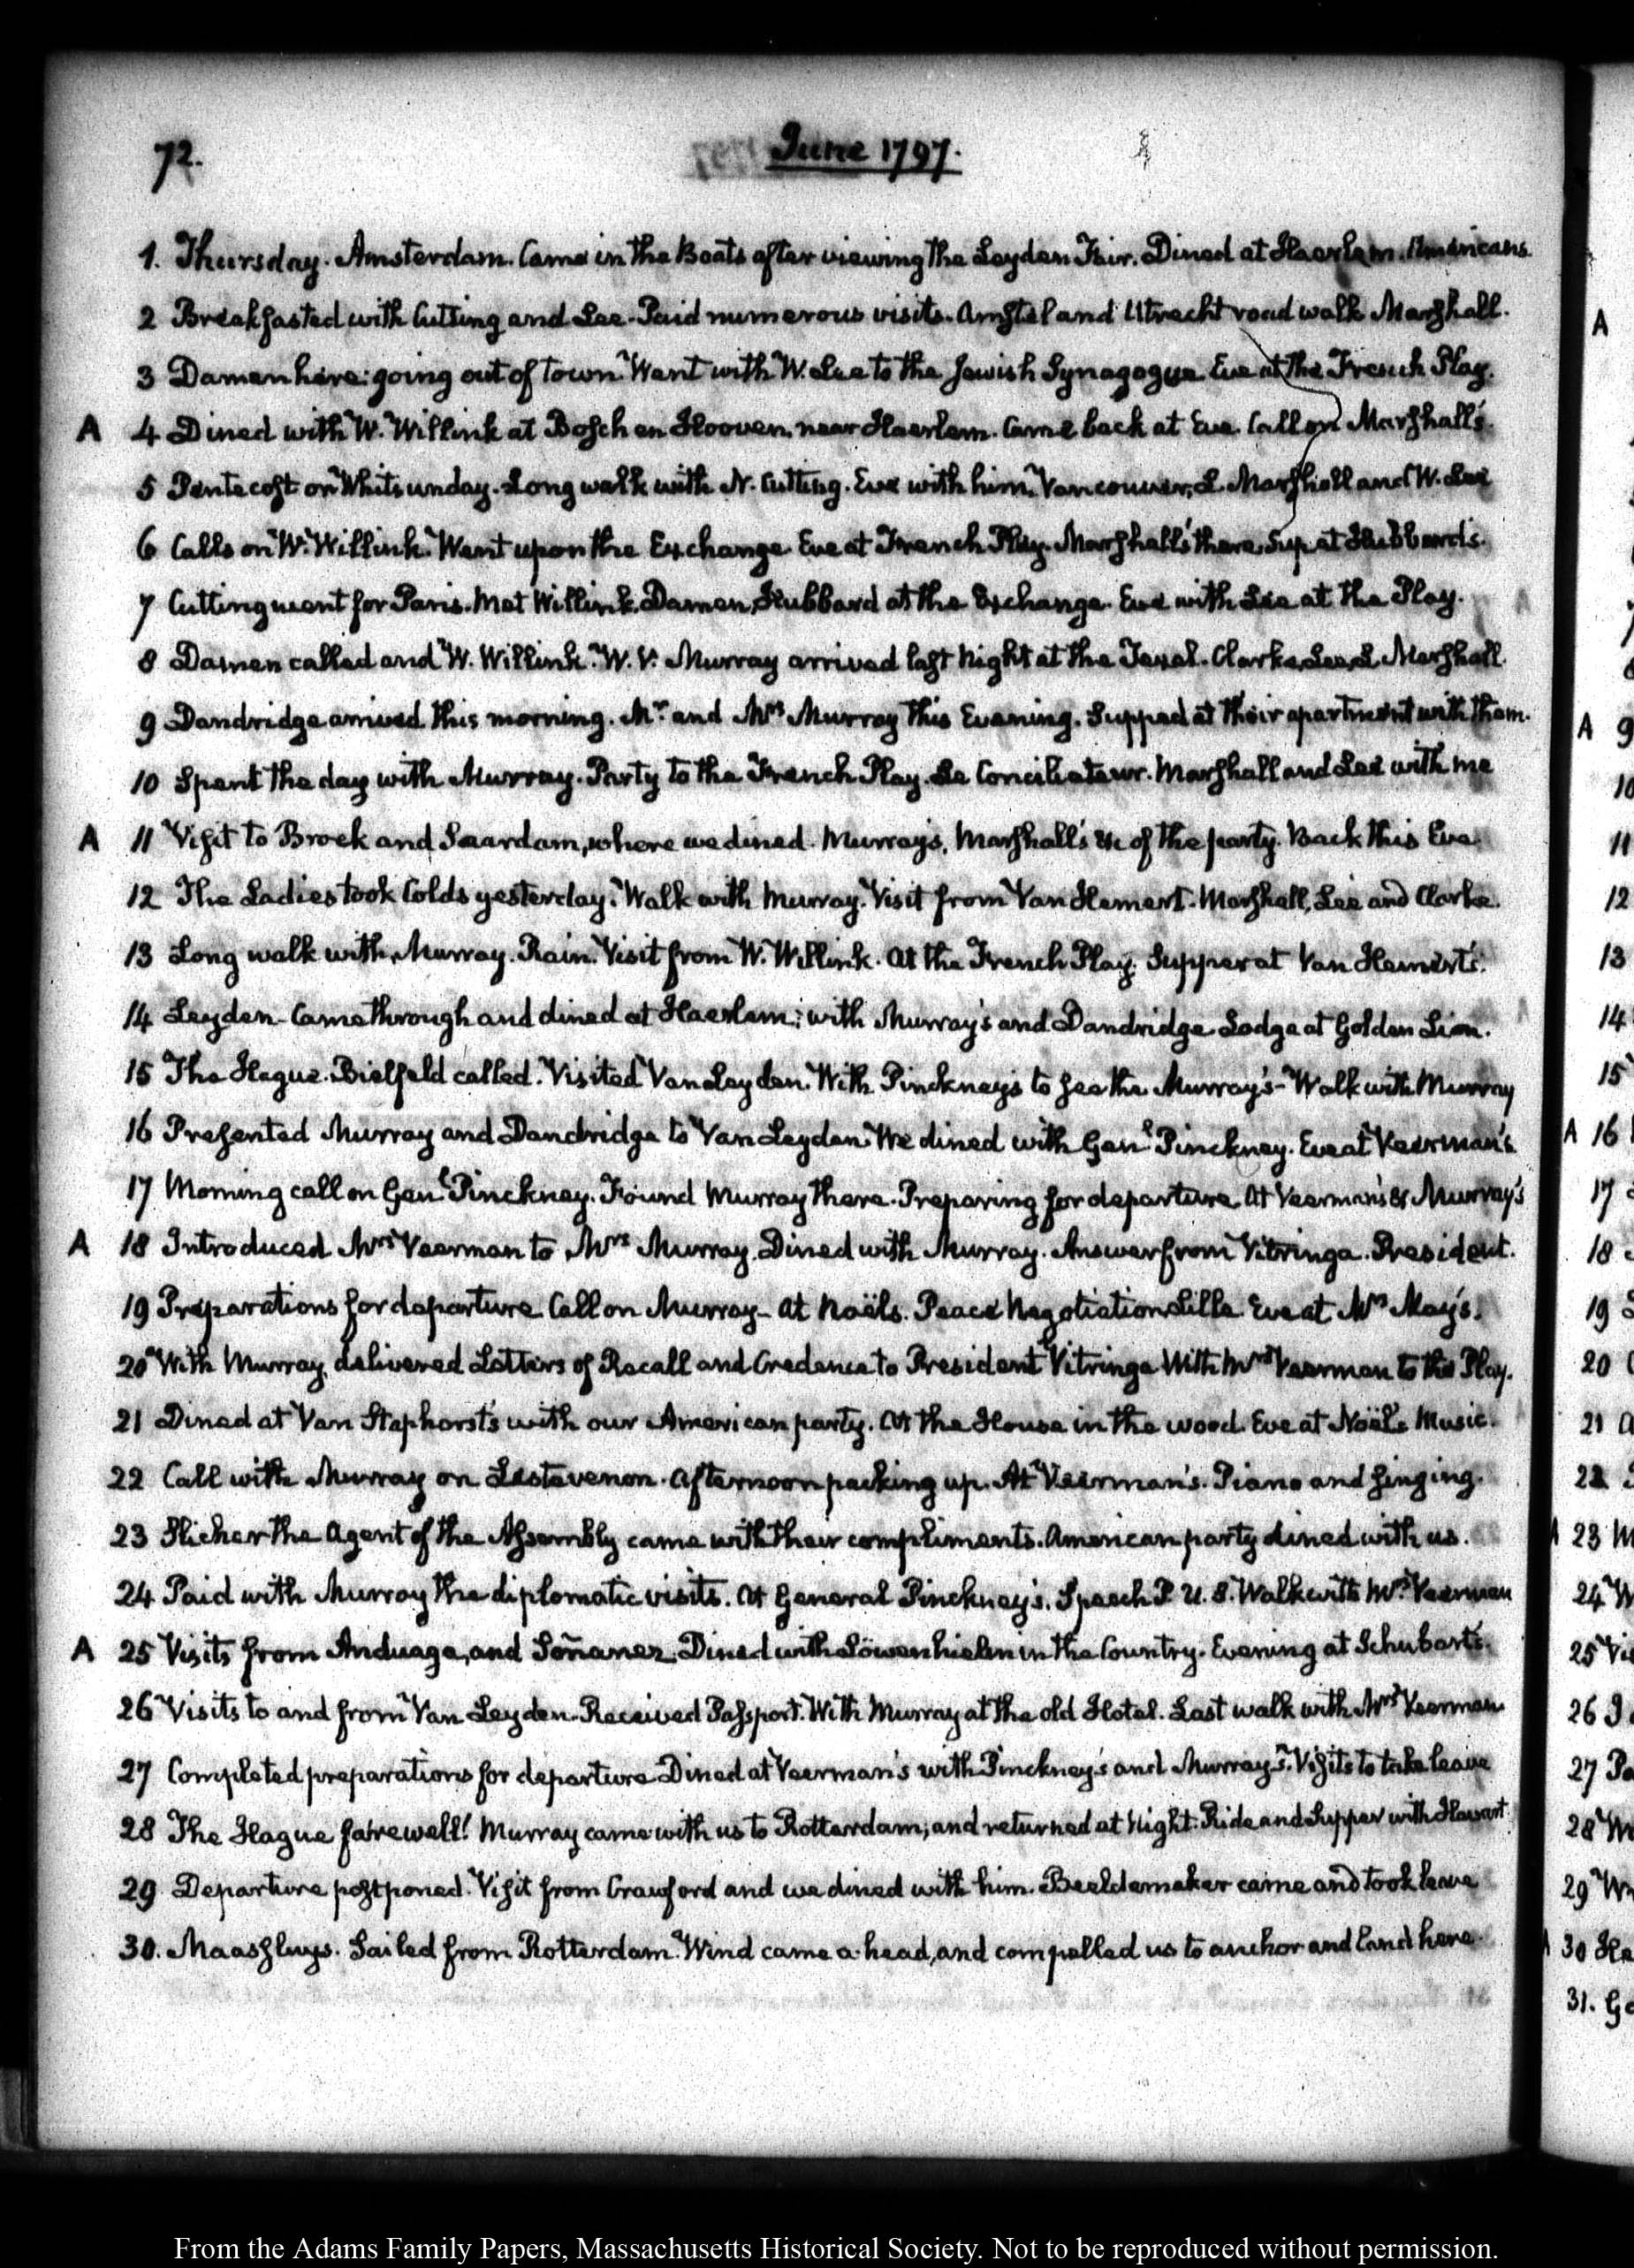 72.
June 1797.
1. Thursday. Amsterdam. Came in the Boats after viewing the Leyden Fair. Dined at Haerlem. Americans.
2 Breakfasted with Cutting and Lee. Paid numerous visits. Amstel and Utrecht road walk Marshall.
3 Damen here: going out of town. Went with W. Lee to the Jewish Synagogue. Eve at the French Play.
A 4 Dined with W. Willink at Bosch en Hooven, near Haerlem. Came back at Eve. Call on Marshall's.
5 Pentecost or Whitsunday. Long walk with N. Cutting. Eve with him, Vancouver, L. Marshall and W. Lee
6 Calls on W. Willink. Went upon the Exchange. Eve at French Play. Marshall's there, Sup at Hubbard's.
7 Cutting went for Paris. Met Willink, Damen, Hubbard at the Exchange. Eve with Lee at the Play.
8 Damen called and W. Willink. W. V. Murray arrived last night at the Texel. Clarke, Lee, L Marshall.
9 Dandridge arrived this morning. Mr. and Mrs Murray this Evening. Supped at their apartment with them.
10 Spent the day with Murray. Party to the French Play. Le Conciliateur. Marshall and Lee with me
A 11 Visit to Broek and Saardam, where we dined. Murray's, Marshall's &c of the party. Back this Eve.
12 The Ladies took Colds yesterday. Walk with Murray. Visit from Van Hemert. Marshall, Lee and Clarke.
13 Long walk with Murray. Rain. Visit from W. Willink. At the French Play. Supper at Van Hemert's.
14 Leyden. Came through and dined at Haerlem; with Murray's and Dandridge. Lodge at Golden Lion.
15 The Hague. Bielfeld called. Visited Van Leyden. With Pinckney's to see the Murray's - Walk with Murray
16 Presented Murray and Dandridge to Van Leyden. We dined with Genl. Pinckney. Eve at Veerman's.
17 Morning call on Genl. Pinckney. Found Murray there. Preparing for departure. At Veerman's & Murray's
A 18 Introduced Mrs Veerman to Mrs Murray. Dined with Murray. Answer from Vitringa. President.
19 Preparations for departure. Call on Murray - At Noël's. Peace Negotiation Lille. Eve at Mrs May's.
20 With Murray, delivered Letters of Recall and Credence to President Vitringa. With Mrs Veerman to the Play.
21 Dined at Van Staphorst's with our American party. At the House in the wood. Eve at Noël's Music.
22 Call with Murray on Lestevenon. Afternoon packing up. At Veerman's. Piano and singing.
23 Slicher the Agent of the Assembly came with their compliments. American party dined with us.
24 Paid with Murray the diplomatic visits. At General Pinckney's. Speech P. U. S. Walk with Mrs. Veerman
A 25 Visits from Anduaga, and Soñanez. Dined with Löwenhielm in the Country. Evening at Schubart's.
26 Visits to and from Van Leyden. Received Passport. With Murray at the old Hotel. Last walk with Mrs Veerman
27 Completed preparations for departure. Dined at Veerman's with Pinckney's and Murray's. Visits to take leave
28 The Hague farewell! Murray came with us to Rotterdam; and returned at Night. Ride and Supper with
29 Departure postponed. Visit from Crawford and we dined with him. Beeldemaker came and took leave
30. Maassluys. Sailed from Rotterdam. Wind came a-head, and compelled us to anchor and land here.
A
A 9
10
11
12
13
14
15
A 16
17
18
19
20
21
22
23
24
25
26
27
28
29
30
31.
From the Adams Family Papers, Massachusetts Historical Society. Not to be reproduced without permission.